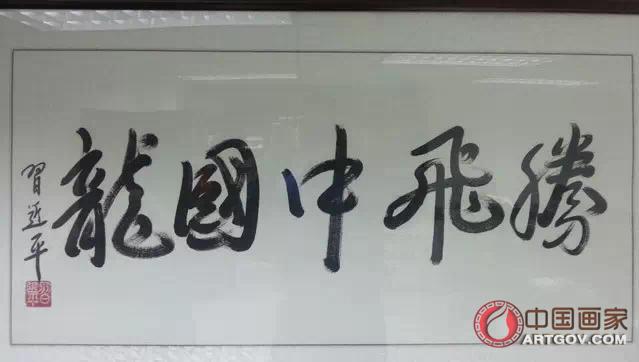 騰飛中國龍
習近平
中国画家
ARTGOV.COM